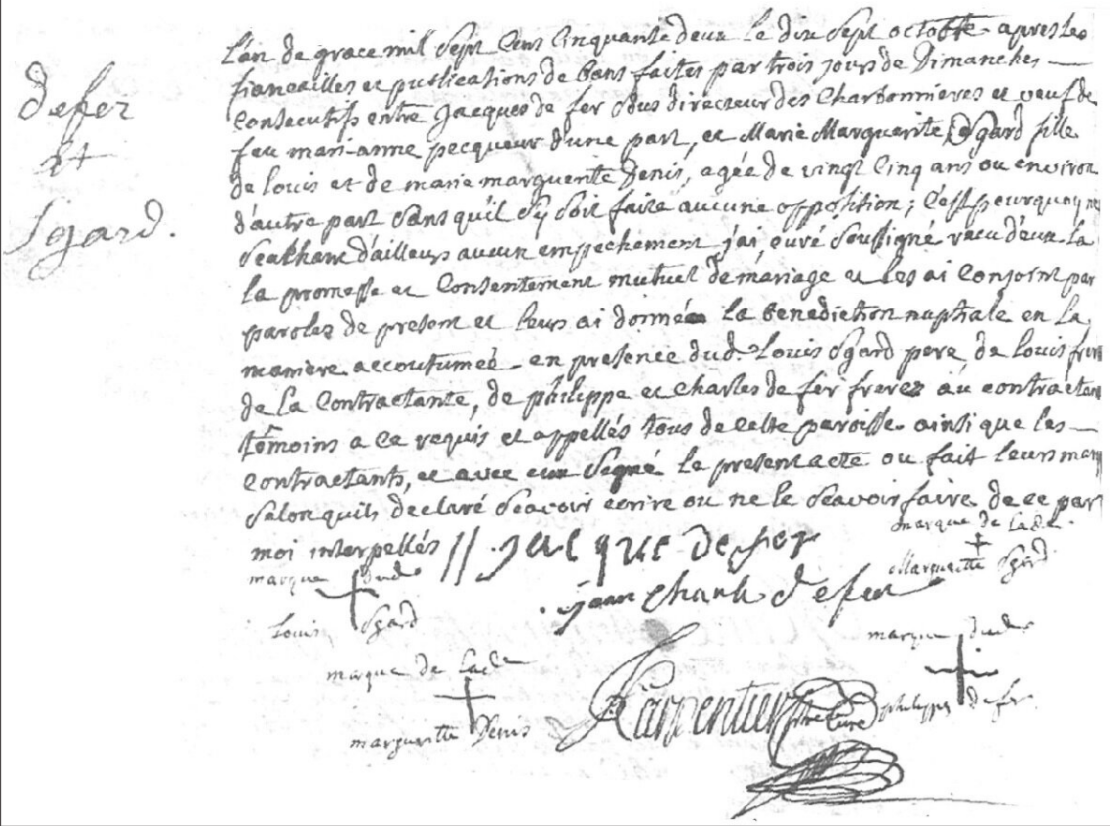 defer
et
Sgard.
L'an de grace mil Sept Cens Cinquante deux le dix Sept octobre apres les
fiancailles et publications de bans faites par trois jours de Dimanches
Consecutifs entre Jacques de fer Sous directeur des Charbonnieres et veuf de
feu mari-anne pecqueur d'une part, et Marie Marguerite Sgard fille
de Louis et de marie marguerite Denis, agée de vingt Cinq ans ou environ
d'autre part Sans qu'il S'y Soit faite aucune opposition; C'est pourquoy ne
Seachant d'ailleurs aucun empechement j'ai curé Soussigné recu d'eux la
la promesse et Consentement mutuel de mariage et les ai Conjoint par
paroles de present et leurs ai donné la benediction nuptiale en la
maniere accoutumeé en presence dud. Louis Sgard pere de louis frere
de la Contractante, de philippe et Charles de fer freres au contractant
témoins a ce requis et appellés tous de cette paroisse ainsi que les
Contractants, et avec eux Signé le present acte ou fait leurs marq
Selon quils declaré Scavoir écrire ou ne le Scavoir faire de ce par
moi interpellés // jacque defer
marque de lade
Marguerite Sgard
marque dud
Louis Sgard
jean Charle defer
marque de lade
marguerite Denis
Carpentier ptre Curé
marque dud
philippe de fer